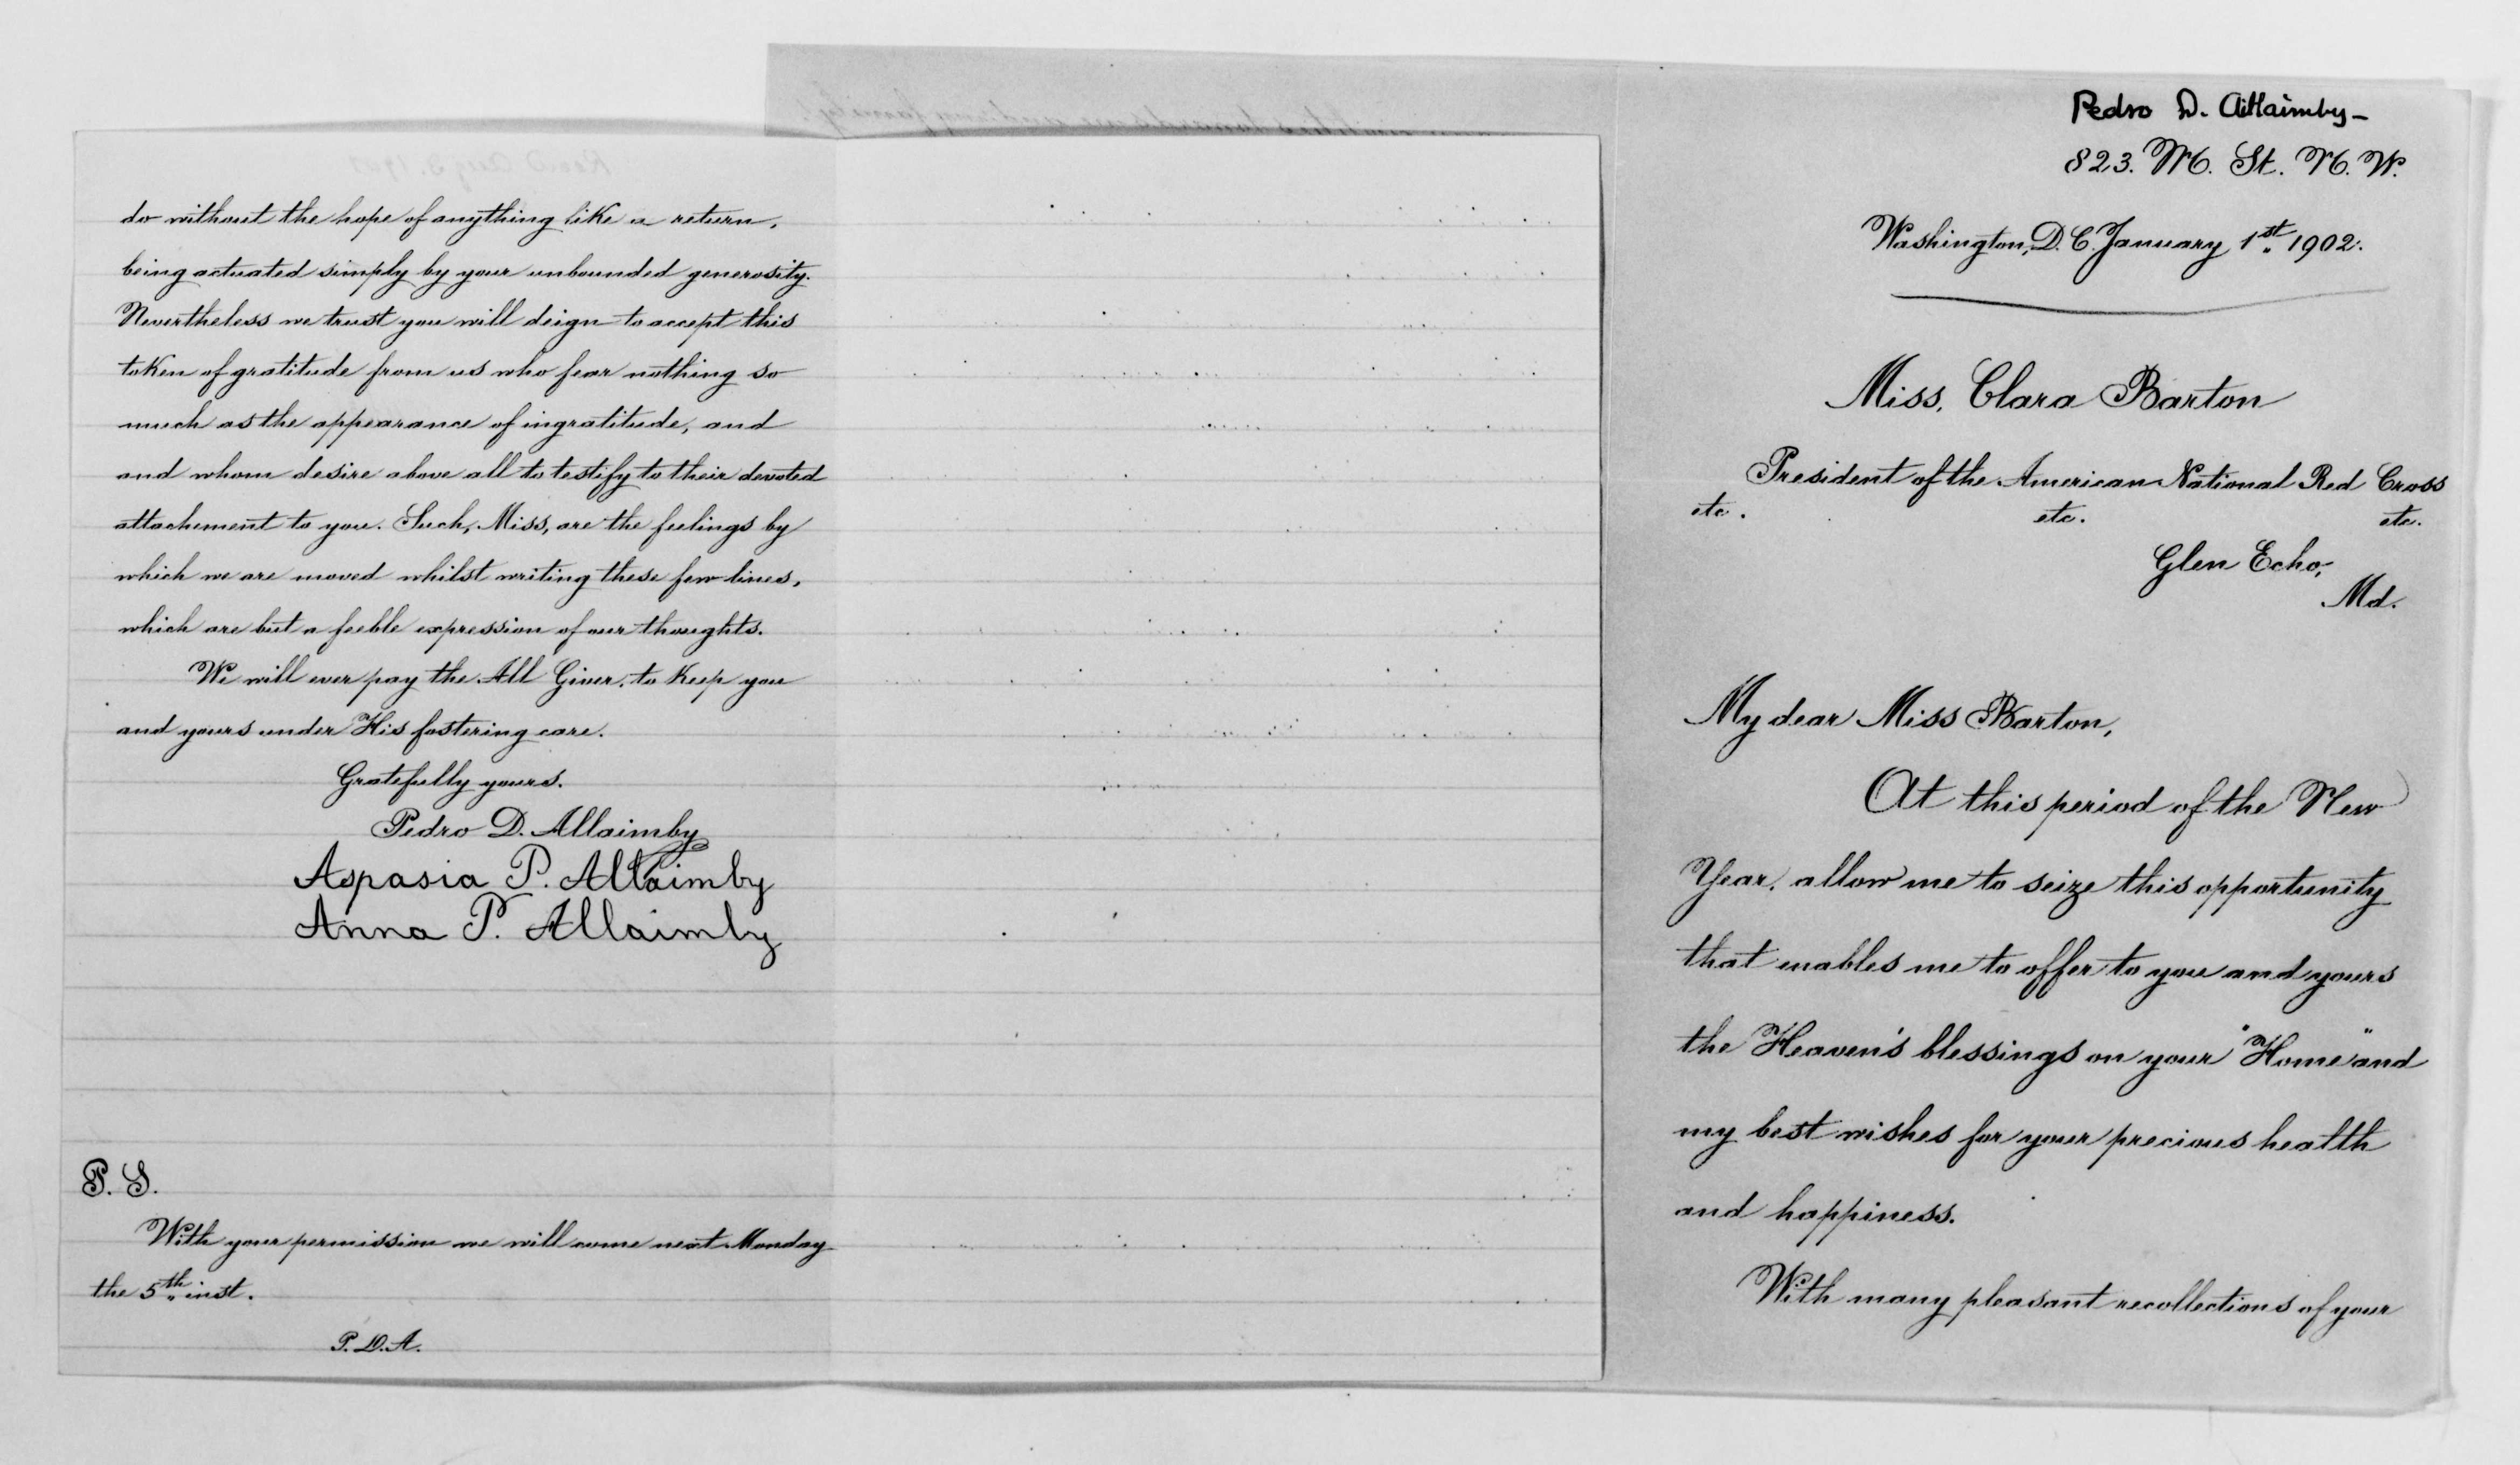 do without the hope of anything like a return,
being actuated simply by your unbounded generosity.
Nevertheless we trust you will deign to accept this
token of gratitude from us who fear nothing so
much as the appearance of ingratitude, and
and whom desire above all to testify to their devoted
attachement to you. Such, Miss, are the feelings by
which we are moved whilst writing these few lines,
which are but a feeble expression of our thoughts.
We will ever pay the All Giver, to Keep you
and yours under His fostering care.
Gratefully yours.
Pedro D. Allaimby
Aspasia P. Allaimby
Anna P. Allaimby
P. S.
With your permission we will come next Monday
the 5th inst.
P. D. A.
Pedro D. Allaimby -
823. M. St. N. W.
Washington, D. C. January 1st 1902.
Miss, Clara Barton
President of the American National Red Cross
etc. etc. etc.
Glen Echo,
Md.
My dear Miss Barton,
At this period of the New
Year, allow me to seize this opportunity
that enables me to offer to you and yours
the Heaven's blessings on your "Home" and
my best wishes for your precious health
and happiness.
With many pleasant recollections of your